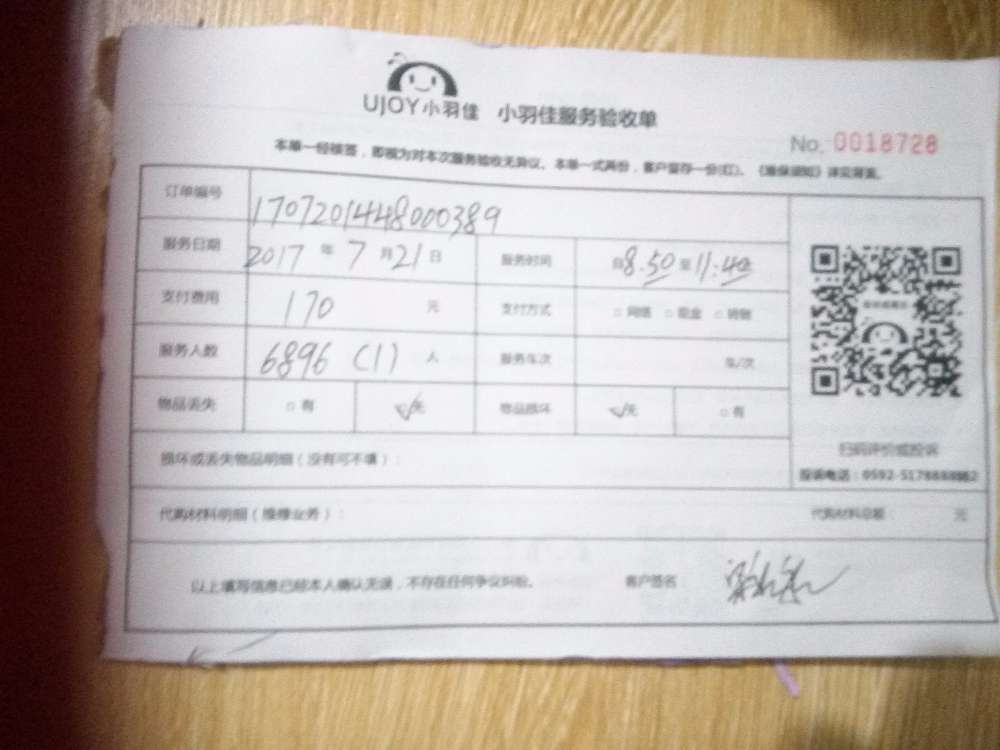 UJOY小羽佳 小羽佳服务验收单
No. 0018728
本单一经核签，即视为对本次服务验收无异议。本单一式两份，客户留存一份(红)。《维保须知》详见背面。
订单编号 1707201448000389
服务日期 2017 年 7 月 21 日 服务时间 自8.50至11:40
支付费用 170 元 支付方式 □ 网络 □ 现金 □ 转账
服务人数 6896 (1) 人 服务车次 车/次
物品丢失 □ 有 ☑无 物品损坏 ☑无 □ 有
扫码评价或投诉
损坏或丢失物品明细（没有可不填）：
投诉电话：0592-5178888
代购材料明细（维修业务）： 代购材料总额 元
以上填写信息已经本人确认无误，不存在任何争议纠纷。 客户签名